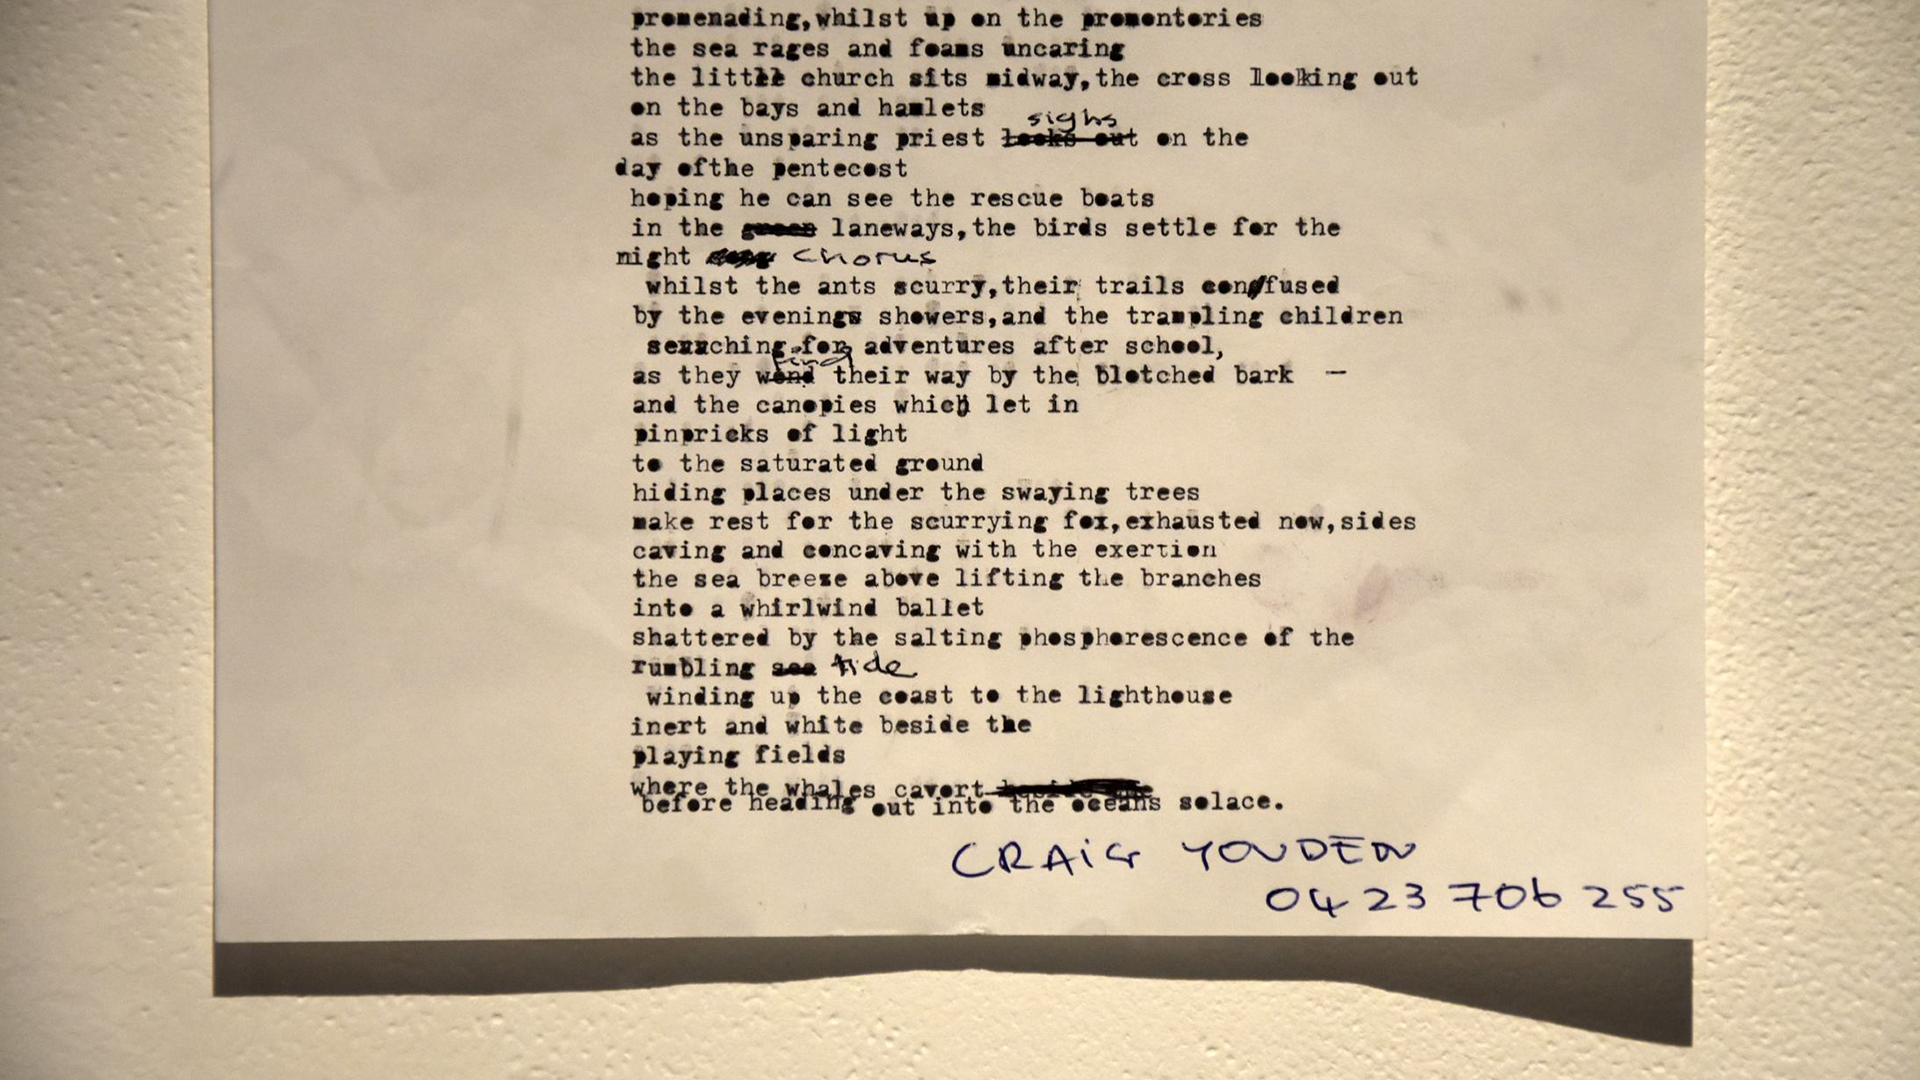 promenading,whilst up on the promontories
the sea rages and foams uncaring
the little church sits midway,the cross looking out
on the bays and hamlets
sighs
as the unsparing priest looks out on the
day ofthe pentecost
hoping he can see the rescue boats
in the green laneways,the birds settle for the
night chorus
whilst the ants scurry,their trails confused
by the evenings showers,and the trampling children
searching for adventures after school,
find
as they wend their way by the blotched bark —
and the canopies which let in
pinpricks of light
to the saturated ground
hiding places under the swaying trees
make rest for the scurrying fox,exhausted now,sides
caving and concaving with the exertion
the sea breeze above lifting the branches
into a whirlwind ballet
shattered by the salting phosphorescence of the
rumbling sea tide
winding up the coast to the lighthouse
inert and white beside the
playing fields
where the whales cavort
before heading out into the oceans solace.
CRAIG YOUDEN
0423 706 255